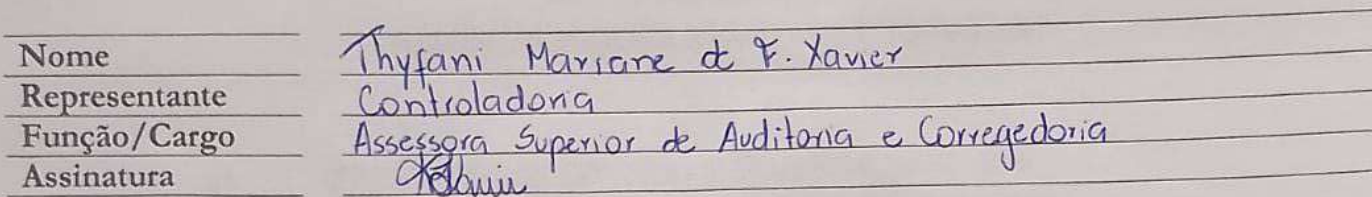 Nome Thyfani Mariane de F. Xavier
Representante Controladoria
Função/Cargo Assessora Superior de Auditoria e Corregedoria
Assinatura